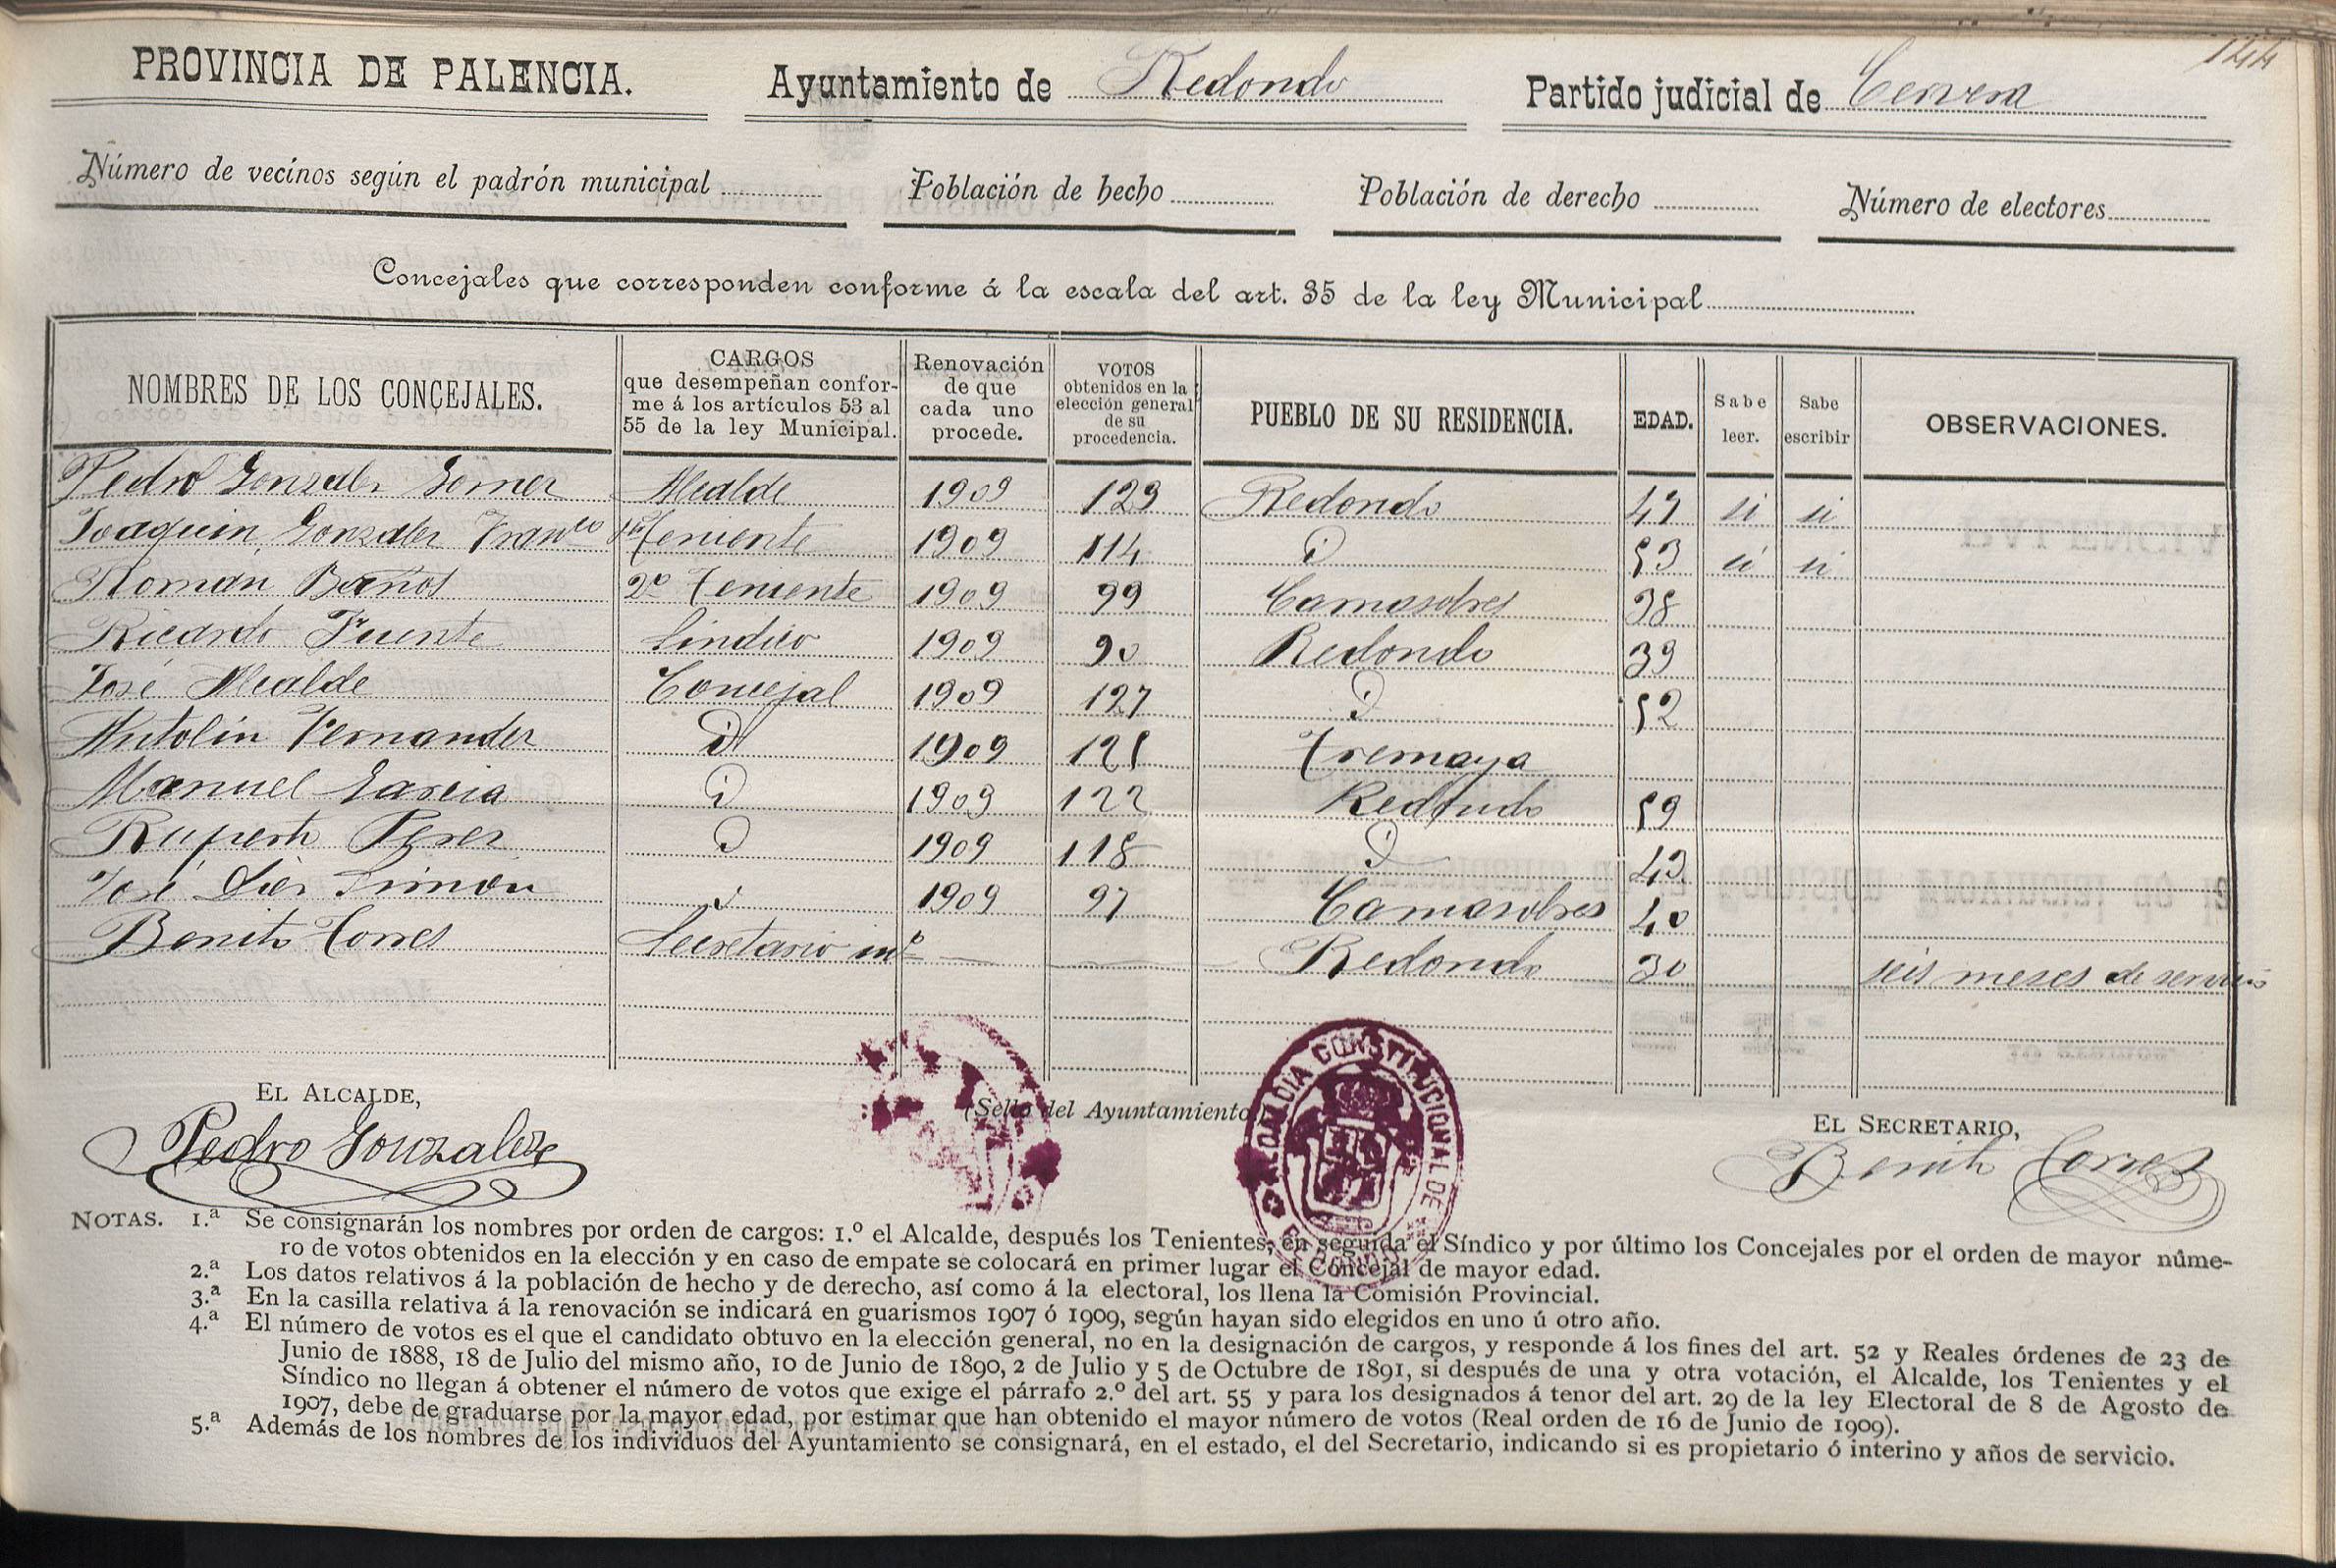 144
PROVINCIA DE PALENCIA. Ayuntamiento de Redondo Partido judicial de Cervera
Número de vecinos según el padrón municipal Población de hecho Población de derecho Número de electores
Concejales que corresponden conforme á la escala del art. 35 de la ley Municipal
NOMBRES DE LOS CONCEJALES. CARGOS que desempeñan conforme á los artículos 53 al 55 de la ley Municipal. Renovación de que cada uno procede. VOTOS obtenidos en la elección general de su procedencia. PUEBLO DE SU RESIDENCIA. EDAD. Sabe leer. Sabe escribir OBSERVACIONES.
Pedro Gonzalez Gomez Alcalde 1909 123 Redondo si si
Joaquin Gonzalez Franco 1er Teniente 1909 114 D 53 si si
Roman Baños 2º Teniente 1909 99 Camasobres 38
Ricardo Fuente Sindico 1909 90 Redondo 39
José Alcalde Concejal 1909 127 D 52
Antolin Fernandez D 1909 125 Tremaya
Manuel Garcia D 1909 122 Redondo 59
Ruperto Perez D 1909 118 D 43
José Diez Simón D 1909 97 Camasobres 40
Benito Torres Secretario intº Redondo 30 seis meses de servicio
EL ALCALDE,
Pedro Gonzalez
(Sello del Ayuntamiento)
ALCALDIA CONSTITUCIONAL DE
EL SECRETARIO,
Benito Torres
NOTAS. 1.ª Se consignarán los nombres por orden de cargos: 1.º el Alcalde, después los Tenientes, en seguida el Síndico y por último los Concejales por el orden de mayor núme-
ro de votos obtenidos en la elección y en caso de empate se colocará en primer lugar el Concejal de mayor edad.
2.ª Los datos relativos á la población de hecho y de derecho, así como á la electoral, los llena la Comisión Provincial.
3.ª En la casilla relativa á la renovación se indicará en guarismos 1907 ó 1909, según hayan sido elegidos en uno ú otro año.
4.ª El número de votos es el que el candidato obtuvo en la elección general, no en la designación de cargos, y responde á los fines del art. 52 y Reales órdenes de 23 de
Junio de 1888, 18 de Julio del mismo año, 10 de Junio de 1890, 2 de Julio y 5 de Octubre de 1891, si después de una y otra votación, el Alcalde, los Tenientes y el
Síndico no llegan á obtener el número de votos que exige el párrafo 2.º del art. 55 y para los designados á tenor del art. 29 de la ley Electoral de 8 de Agosto de
1907, debe de graduarse por la mayor edad, por estimar que han obtenido el mayor número de votos (Real orden de 16 de Junio de 1909).
5.ª Además de los nombres de los individuos del Ayuntamiento se consignará, en el estado, el del Secretario, indicando si es propietario ó interino y años de servicio.